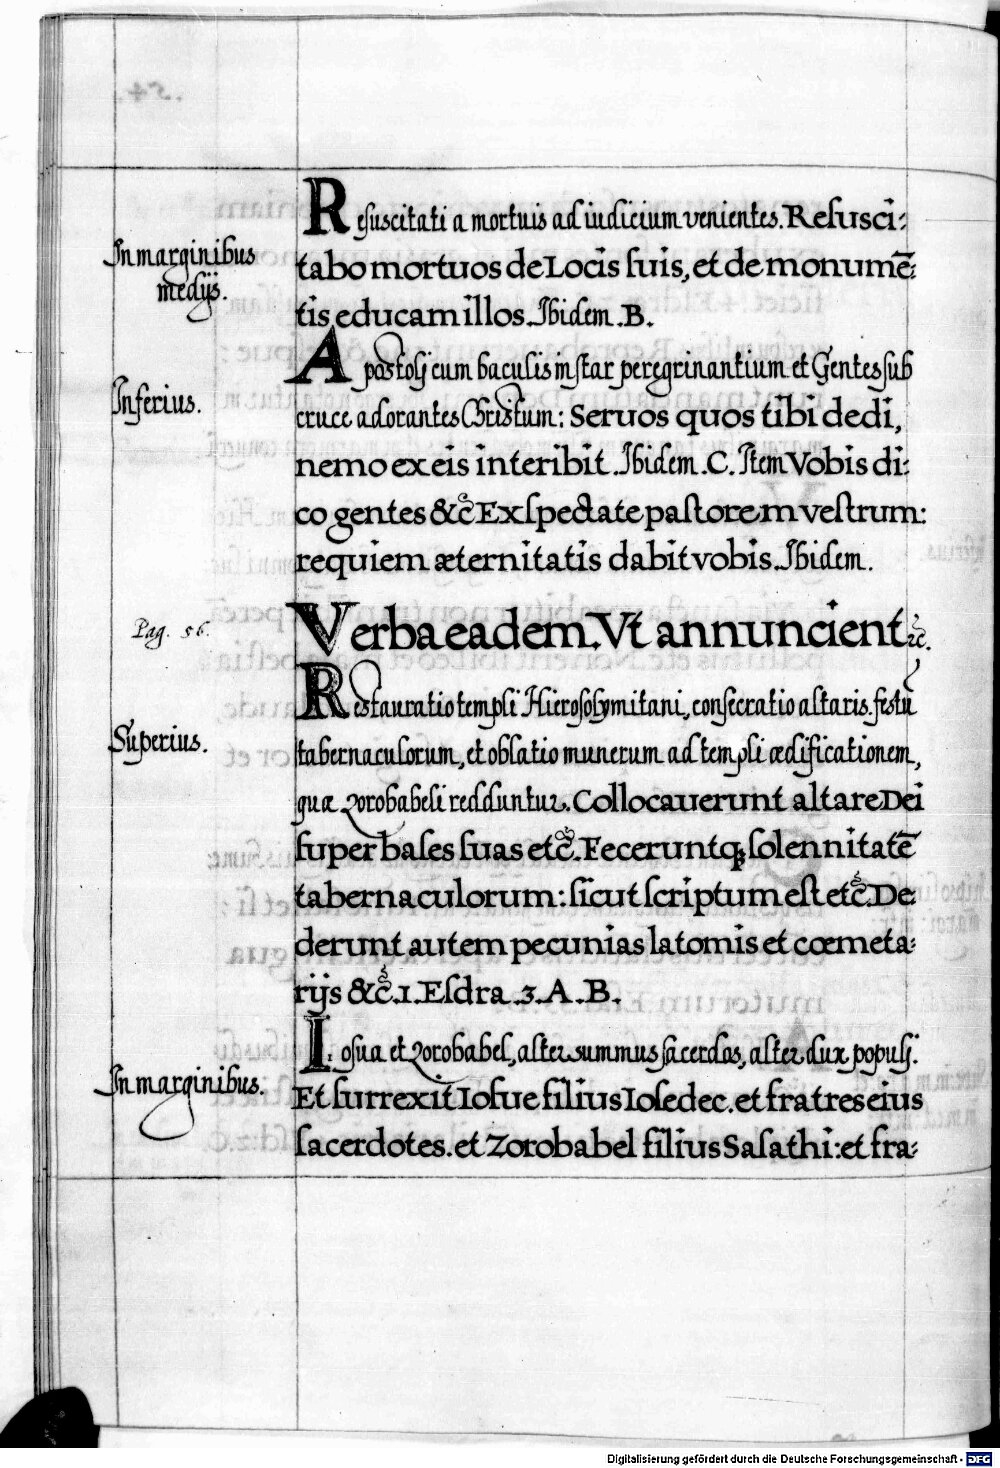 Resuscitati a mortuis ad iudicium venientes. Resusci-
In marginibus
medijs.
tabo mortuos de Locis suis, et de monumē-
tis educam illos. Ibidem .B.
Apostolj cum baculis instar peregrinantium et Gentes sub
Inferius.
cruce adorantes Christum: Seruos quos tibi dedi,
nemo ex eis interibit. Ibidem .C. Item Vobis di-
co gentes &c̃ Exspectate pastorem vestrum:
requiem æternitatis dabit vobis. Ibidem.
Pag. 56.
Verba eadem. Vt annuncient &c.
Restauratio templi Hierosolymitani, consecratio altaris festū
Superius.
tabernaculorum, et oblatio munerum ad templi ædificationem,
quæ Zorobabeli redduntur. Collocauerunt altare Dei
super bases suas etc̃. Feceruntq; solennitatē
tabernaculorum: sicut scriptum est etc̃. De-
derunt autem pecunias latomis et cœmeta-
rijs &c̃. 1. Esdra .3. A. B.
Iosua et Zorobabel, alter summus sacerdos, alter dux populj.
In marginibus.
Et surrexit Iosue filius Iosedec. et fratres eius
sacerdotes. et Zorobabel filius Sasathi: et fra-
Digitalisierung gefördert durch die Deutsche Forschungsgemeinschaft - DFG